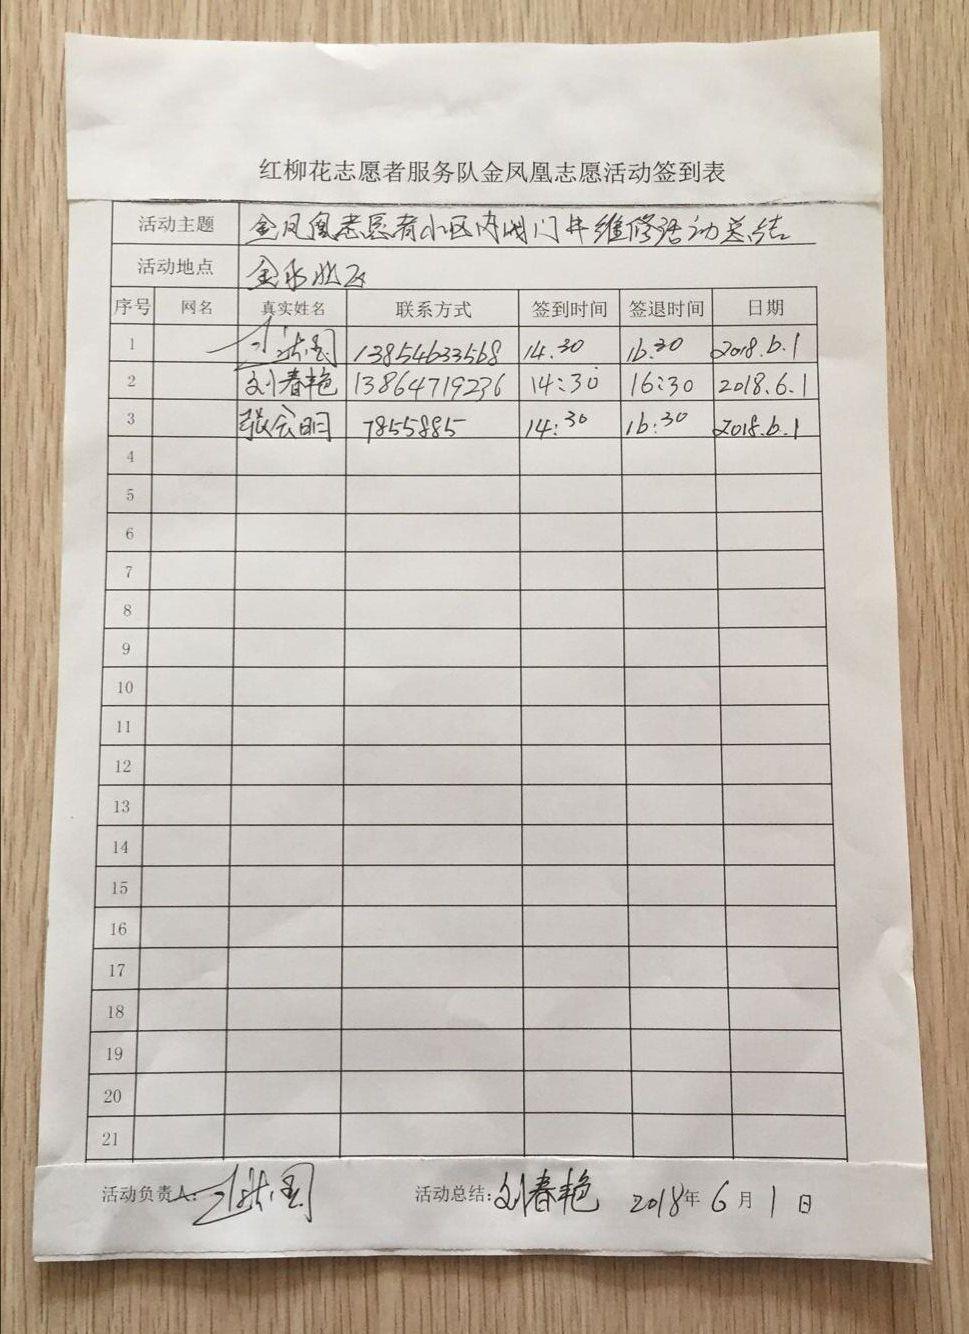 红柳花志愿者服务队金凤凰志愿活动签到表
活动主题 金凤凰志愿者小区内阀门井维修活动总结
活动地点 金水
序号 网名 真实姓名 联系方式 签到时间 签退时间 日期
1 13854633568 14:30 16:30 2018.6.1
2 刘春艳 13864719236 14:30 16:30 2018.6.1
3 张会明 7855885 14:30 16:30 2018.6.1
4
5
6
7
8
9
10
11
12
13
14
15
16
17
18
19
20
21
活动负责人: 活动总结: 刘春艳 2018年6月1日